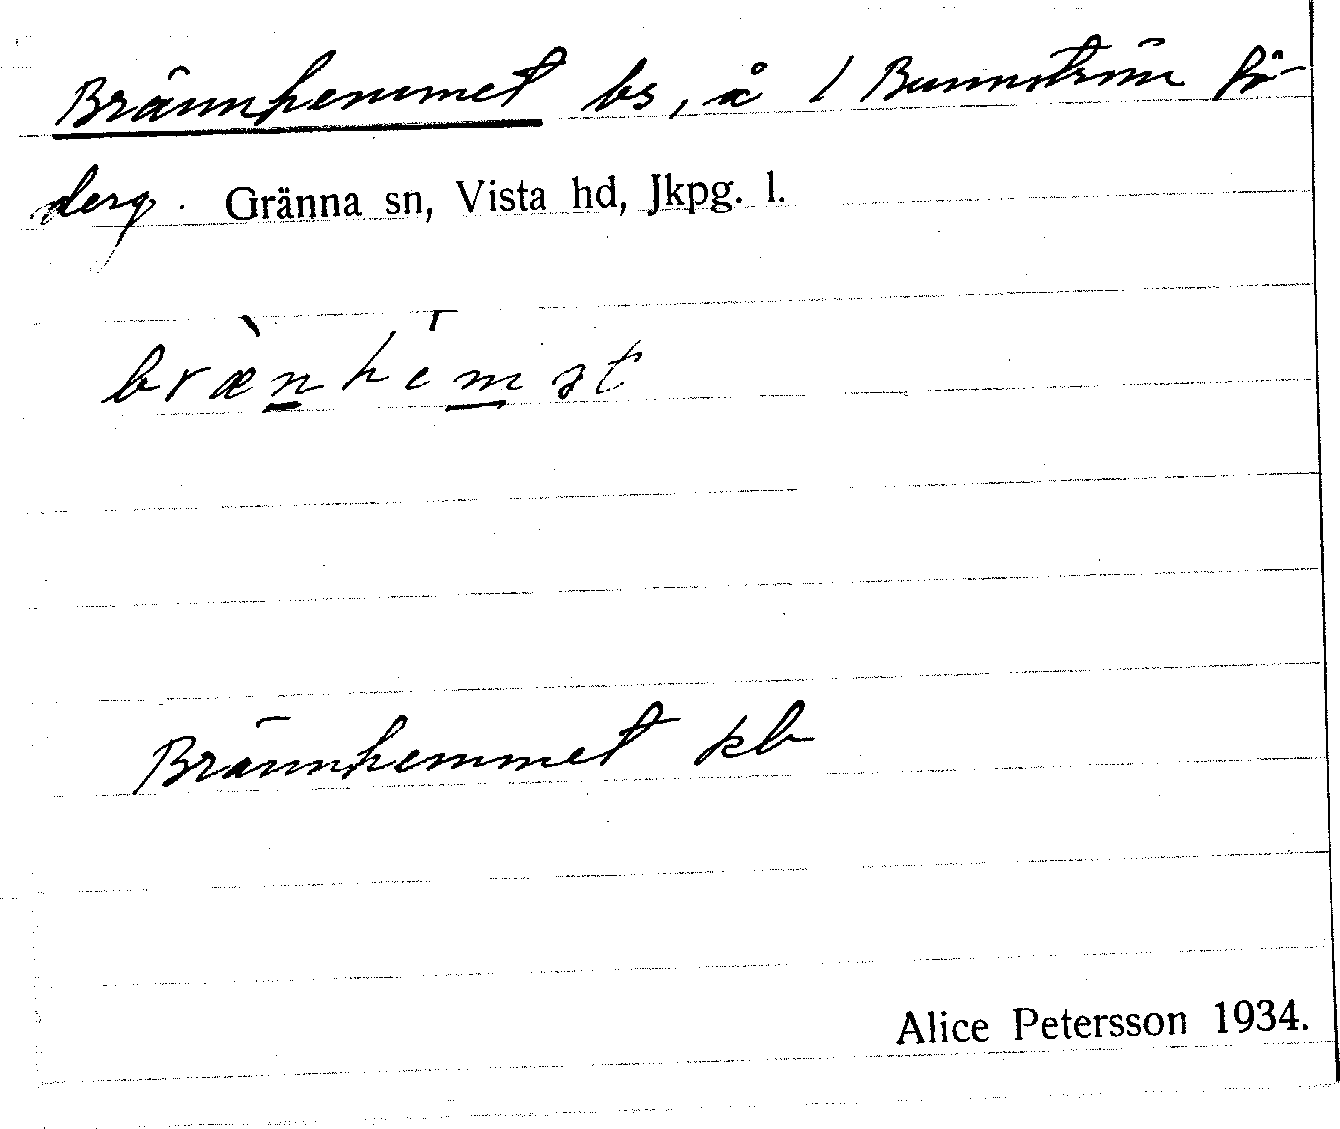 Brännhemmet bs, å 1 Bunnström Sö-
derg. Gränna sn, Vista hd, Jkpg. l.
bræ̀nhemət
Brännhemmet kb
Alice Petersson 1934.